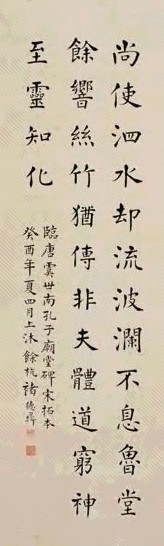 尚使泗水却流波瀾不息魯堂
餘響絲竹猶傳非夫體道窮神
至靈知化
臨唐虞世南孔子廟堂碑宋拓本
癸酉年夏四月上沐餘杭褚德彝